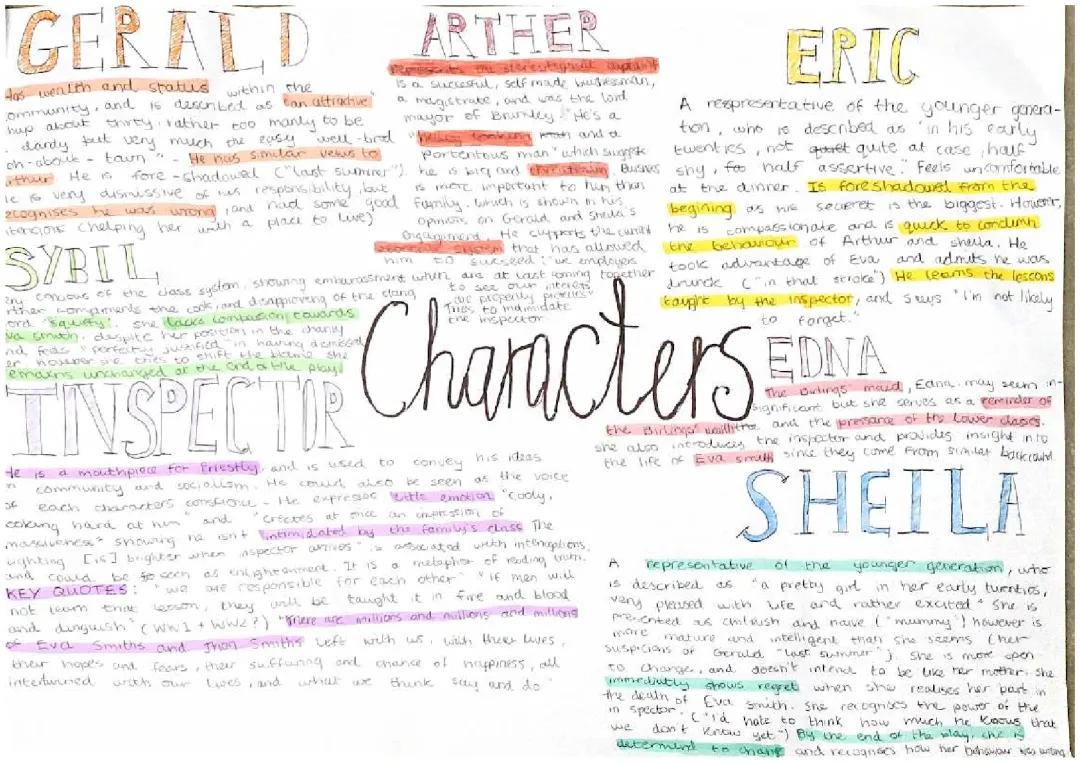 GERALD
Has wealth and status within the
community, and is described as "an attractive
chap about thirty, rather too manly to be
a dandy but very much the easy well-bred
man-about-town" - He has similar veiws to
Arthur. He is fore-shadowed ("last summer").
He is very dismissive of his responsibility, but
recognises he was wrong, and had some good
intensions (helping her with a place to live)
SYBIL
very concious of the class system, showing embarassment when
Arther compliments the cook, and disapproving of the slang
word "squiffy". She lacks compassion towards
Eva smith, despite her position in the charity
and, feels "perfectly justified" in having dismissed
her however she tries to shift the blame she
remains unchanged at the end of the play
INSPECTOR
He is a mouthpiece for Priestly, and is used to convey his ideas
on community and socialism. He could also be seen as the voice
of each characters consciounce - He expresses little emotion "cooly,
looking hard at him" and "creates at once an impression of
massiveness" showing he isn't intimidated by the family's class The
lighting [is] brighter when inspector arrives" is associated with interruptions,
and could be seen as enlightenment. It is a metaphor of reading truth.
KEY QUOTES: "we are responsible for each other" "if men will
not learn that lesson, they will be taught it in fire and blood
and anguish" (WW1 + WW2?) "There are millions and millions and millions
of Eva Smiths and Jhon Smiths left with us, with there lives,
their hopes and fears, their suffering and chance of happiness, all
intertwined with our lives, and what we think say and do"
ARTHER
Represents the stereotypical capitalist
is a succesful, self made businessman,
a magistrate, and was the lord
mayor of Brumley. "He's a
"heavy looking and a
portentous man" which suggests
he is big and threatening Business
is more important to him than
family. which is shown in his
opinions on Gerald and Sheila's
engagement. He supports the current
system that has allowed
him to succeed: "we employers
are at last coming together
to see our interests
are properly protected"
Tries to indimidate
the inspector
Characters
ERIC
A respresentative of the younger genera-
tion, who is described as "in his early
twenties, not quite at ease, half
shy, half assertive." Feels uncomfortable
at the dinner. Is foreshadowed from the
begining as his secret is the biggest. However,
he is compassionate and is quick to condumn
the behaviour of Arthur and sheila. He
took advantage of Eva and admits he was
drunck ("in that stroke") He learns the lessons
taught by the inspector, and says "I'm not likely
to forget."
EDNA
The Birlings' maid, Edna. may seem in-
significant but she serves as a reminder of
the Birlings' wealth and the pressance of the lower clases.
she also introduces the inspector and provides insight into
the life of Eva smith since they come from similar backround
SHEILA
A representative of the younger generation, who
is described as "a pretty girl in her early twenties,
very pleased with life and rather excited" She is
presented as childish and naive ("mummy") however is
more mature and intelligent than she seems (her
suspicions of Gerald "last summer"). She is more open
to change, and doesn't intend to be like her mother. she
immediatly shows regret when she realises her part in
the death of Eva Smith. She recognises the power of the
inspector. ("I'd hate to think how much he knows that
we don't know yet") By the end of the play, she is
determind to change and recognises how her behaviour was wrong.